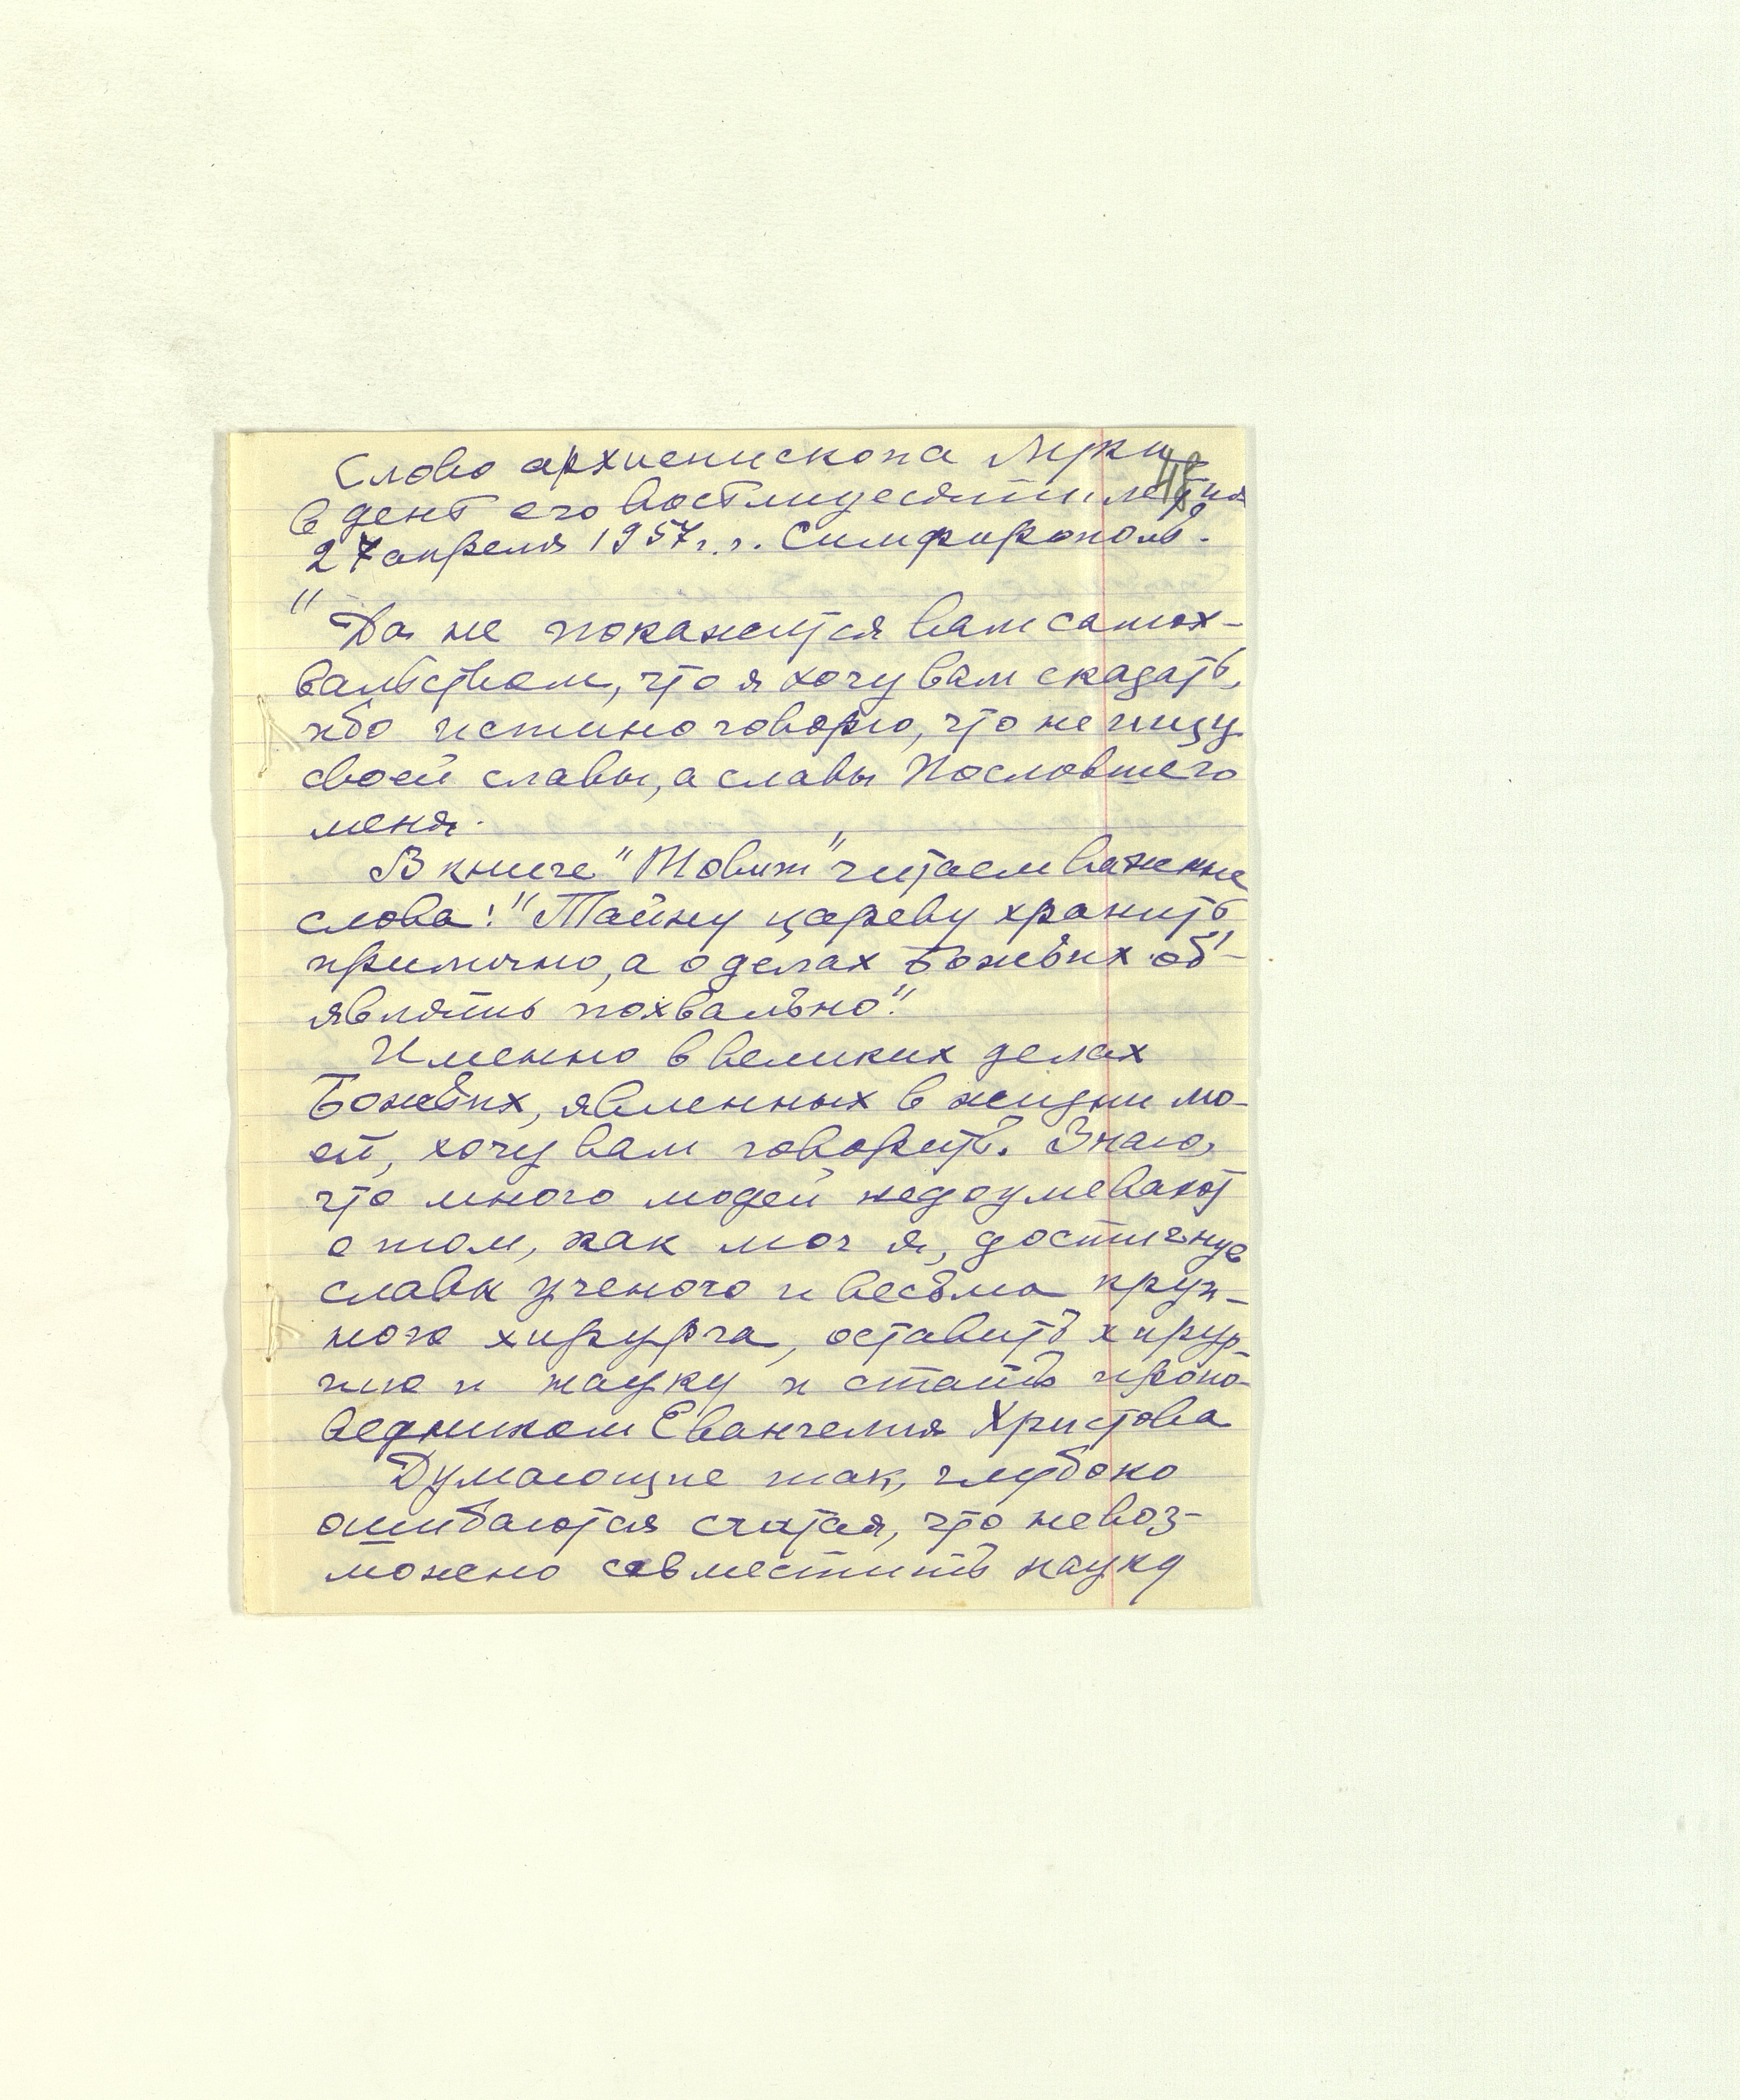 Слово архиепископа Луки
48
в день его восьмидесятилетия
27 апреля 1957 г. г. Симферополь.
"Да не покажется вам самох-
вальством, что я хочу вам сказать,
ибо истино говорю, что не ищу
своей славы, а славы Пославшего
меня.
В книге "Товит" читаем важные
слова: "Тайну цареву хранить
прилично, а о делах Божьих об'-
являть похвально".
Именно в великих делах
Божьих, явленных в жизни мо-
ей, хочу вам говорить. Знаю,
что много людей недоумевают
о том, как мог я, достигнув
славы ученого и весьма круп-
ного хирурга, оставить хирур-
гию и науку и стать пропо-
ведником Евангелия Христова
Думающие так, глубоко
ошибаются считая, что невоз-
можно совместить науку